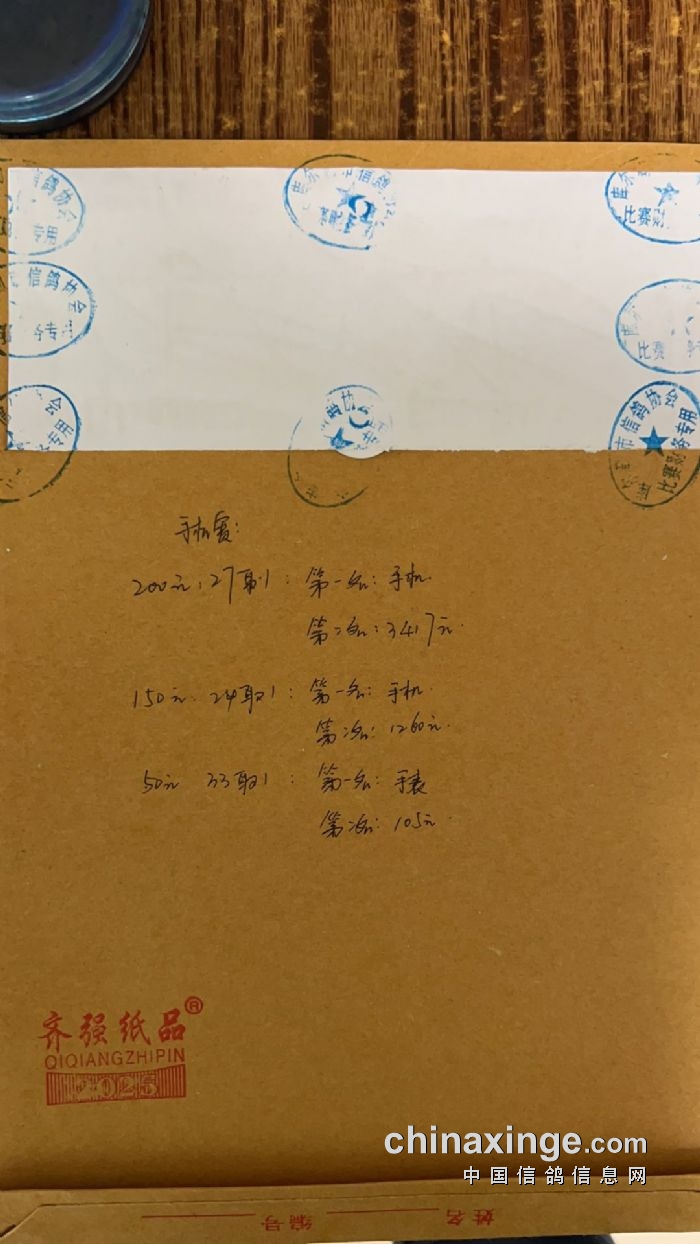 信鸽协会
专用
信鸽协会
信鸽协
比赛
信鸽协会
比赛
市信鸽协会
比赛财务专用
手机赛:
200元, 27取1: 第一名: 手机.
第二名: 3417元.
150元. 24取1: 第一名: 手机.
第二名: 1260元.
50元 33取1: 第一名: 手表
第二名: 105元.
齐强纸品®
QIQIANGZHIPIN
chinaxinge.com
中国信鸽信息网
姓名
编号